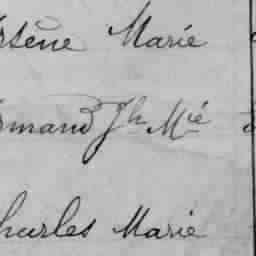 rsène Marie
rmand Jh Mié
harles Marie